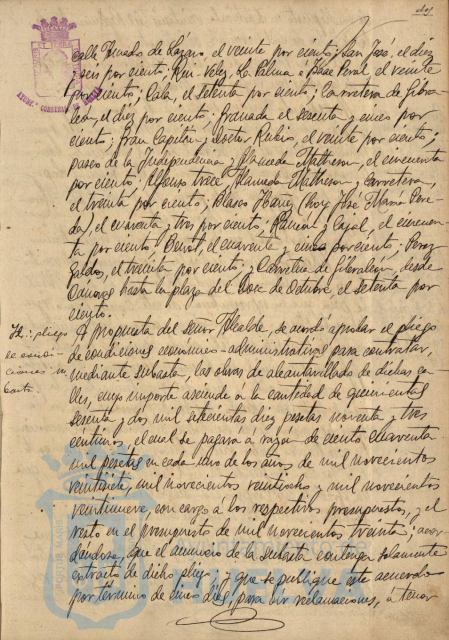 calle Amado de Lázaro, el veinte por ciento; San José, el diez
y seis por ciento; Rui-Velez, La Palma e Isaac Peral, el veinte
por ciento; Cala, el setenta por ciento; Carretera de Gibra-
leon, el diez por ciento; Granada el sesenta y cinco por
ciento; Gran Capitán y Doctor Rubio, el veinte por ciento;
paseo de la Independencia y Alameda Matheson, el cincuenta
por ciento; Alfonso trece, Alameda Matheson y Carretera,
el treinta por ciento; Blasco Ibañez (hoy José Maria Pere-
da), el cuarenta y tres por ciento; Ramón y Cajal, el cincuen-
ta por ciento; Benot, el cuarenta y cinco por ciento; Perez
Galdos, el treinta por ciento; y Carretera de Gibraleón, desde
Cánovas hasta la plaza del Doce de Octubre, el setenta por
ciento.
Id: pliego
de condi-
ciones su-
basta.
A propuesta del señor Alcalde, se acordó aprobar el pliego
de condiciones económico-administrativas para contratar,
mediante subasta, las obras de alcantarillado de dichas ca-
lles, cuyo importe asciende a la cantidad de quinientas
sesenta y dos mil setecientas diez pesetas noventa y tres
centimos, el cual se pagará a razón de ciento cuarenta
mil pesetas en cada uno de los años de mil novecientos
veintisiete, mil novecientos veintiocho y mil novecientos
veintinueve, con cargo a los respectivos presupuestos, y el
resto en el presupuesto de mil novecientos treinta; acor-
dándose, que el anuncio de la subasta contenga solamente
extracto de dicho pliego, y que se publique este acuerdo
por término de cinco dias, para oir reclamaciones, a tenor